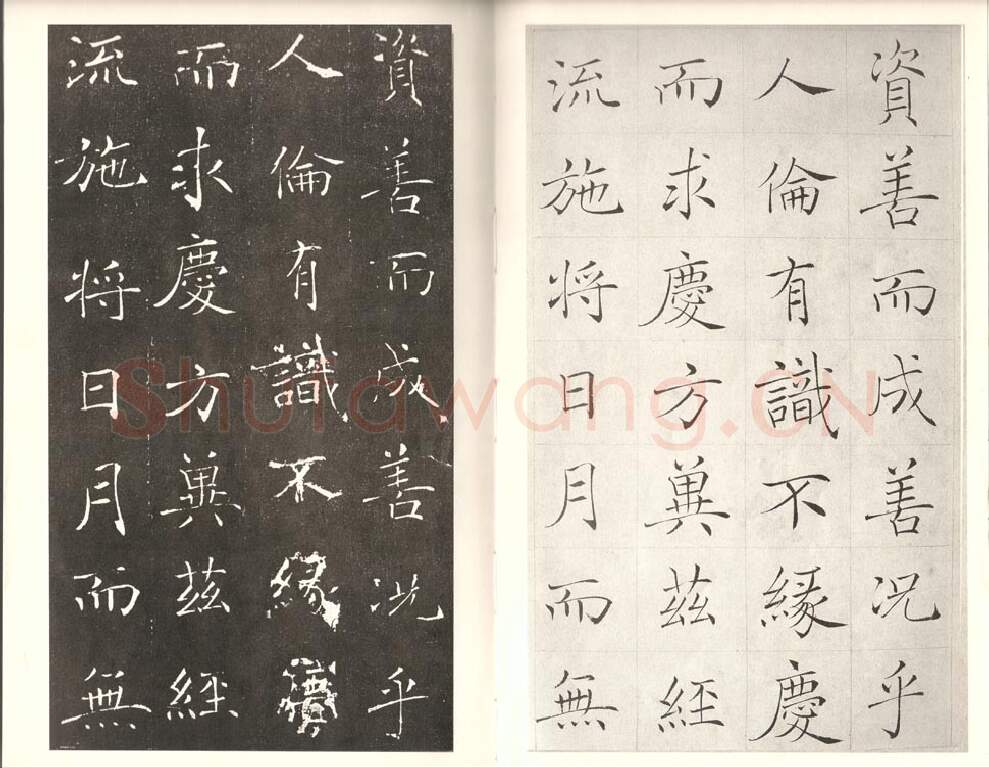 資善而成善况乎
人倫有識不緣慶
而求慶方冀茲經
流施将日月而無
資善而成善况乎
人倫有識不緣
而求慶方冀茲經
流施将日月而無
Shufawang.CN